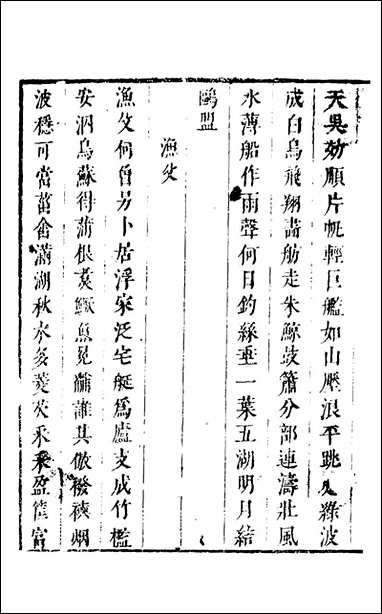 天吳効順片帆輕巨艦如山壓浪平跳入綠波
成白鳥飛翔畵舫走朱鯨鼓簫分部連濤壯風
水薄船作雨聲何日釣絲垂一葉五湖明月結
鷗盟
漁父
漁父何曾另卜居浮家泛宅艇爲廬支成竹檻
安泅鳥蘇得蒲根養鱖魚晃誰其傲撥襖烟
波穩可當菑畬滿湖秋水多菱芡采采盈筐富